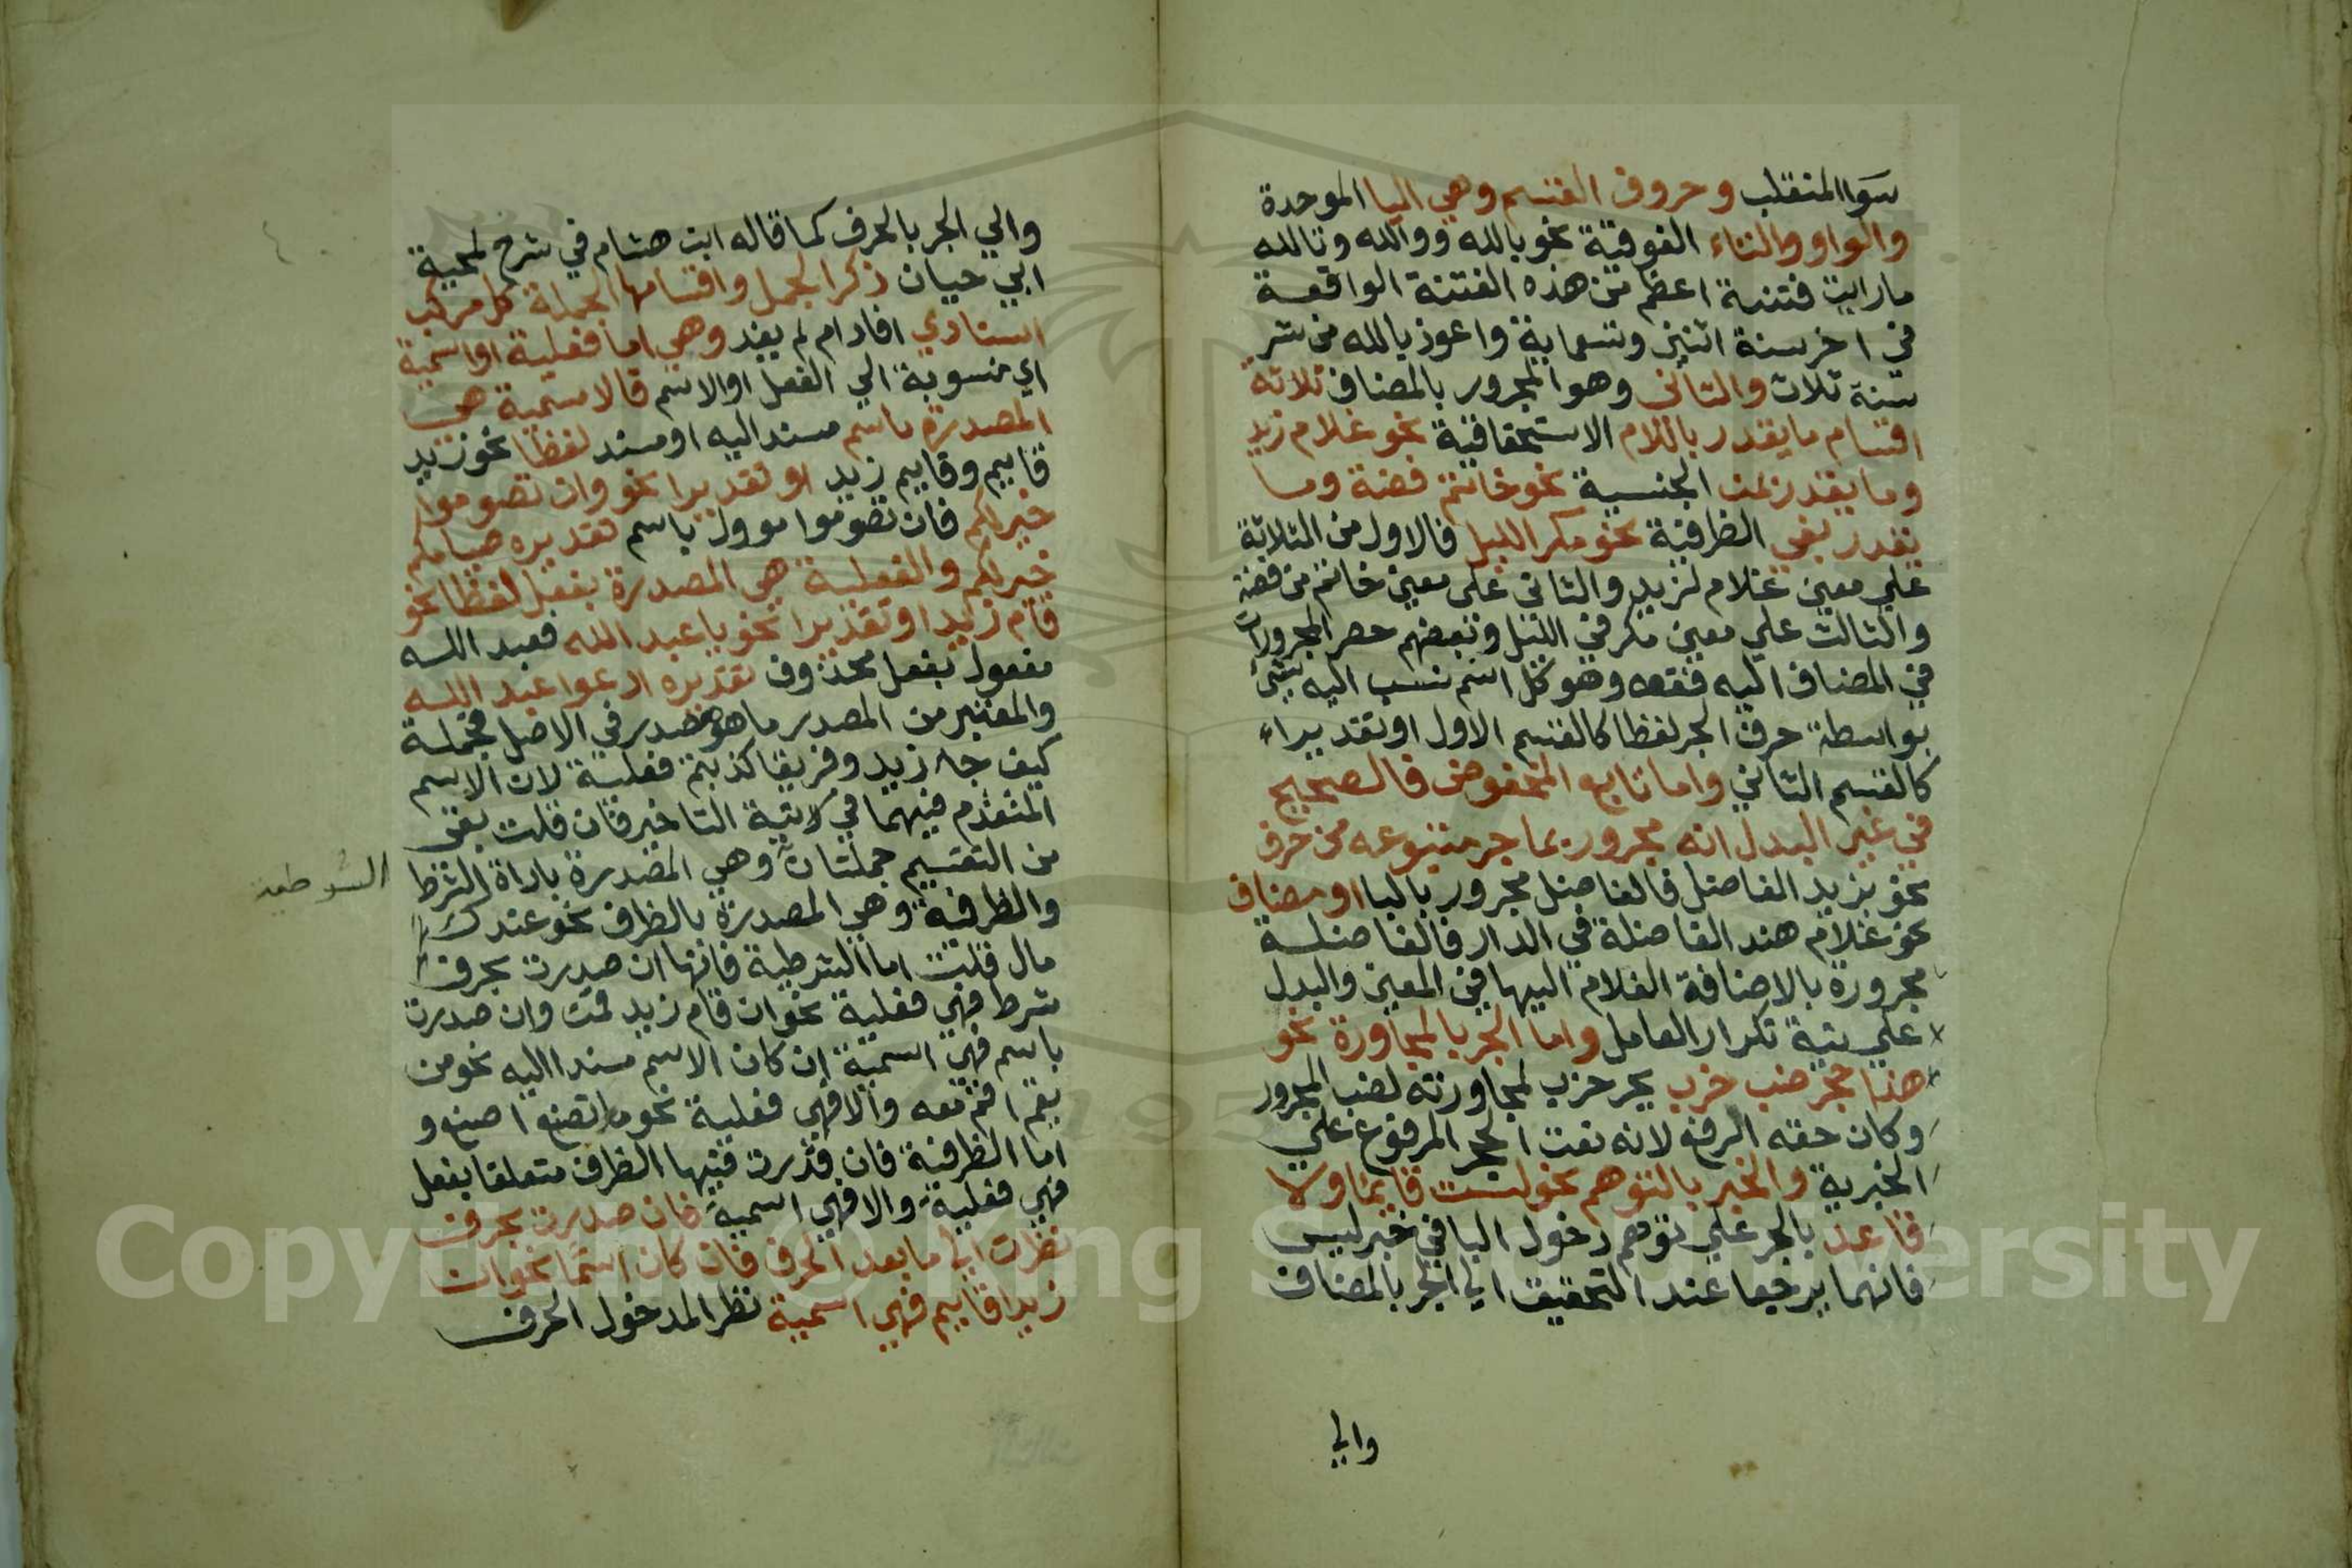 سوا المنقلب وحروف القسم وهي اليا الموحدة
والواو والتاء الفوقية نحو بالله ووالله وتالله
ما رايت فتنة اعظم من هذه الفتنة الواقعة
في اخر سنة اثنين وتسماية واعوذ بالله من شر
سنة ثلاث والثاني وهو المجرور بالمضاف ثلاثة
اقسام ما يقدر باللام الاستحقاقية نحو غلام زيد
وما يقدر بمن الجنسية نحو خاتم فضة وما
يقدر بفي الظرفية نحو مكر الليل فالاول من الثلاثة
علي معين غلام لزيد والثاني على معين خاتم من فضة
والثالث علي معين مكر في الليل وبعضهم حصر المجرورات
في المضاف اليه فقط وهو كل اسم نسب اليه شئ
بواسطة حرف الجر لفظا كالقسم الاول او تقديراء
كالقسم الثاني واما تابع المخفوض فالصحيح
في غير البدل انه مجرور بما جر متبوعه من حرف
نحو بزيد الفاضل فالفاضل مجرور بالبا او مضاف
نحو غلام هند الفاضلة في الدار فالفاضلة
مجرورة بالاضافة الغلام اليها في المعين والبدل
علي نية تكرار العامل واما الجر بالمجاورة نحو
هذا حجر ضب خرب بجر خرب لمجاورته لضب المجرور
وكان حقه الرفع لانه نعت الحجر المرفوع علي
الخبرية والخبر بالتوهم نحو لست قايما ولا
قاعد بالجر علي توهم دخول البا في خبر ليس
فانهما يرجعا عند التحقيق الي الجر بالمضاف
والي
والي الجر بالحرف كما قاله ابن هشام في شرح لمحية
ابي حيان ذكر الجمل واقسامها الجملة كل مركب
اسنادي افاد ام لم يفد وهي اما فعلية او اسمية
اي منسوبة الي الفعل او الاسم فالاسمية هي
المصدرة باسم مسند اليه او مسند لفظا نحو زيد
قايم وقايم زيد او تقديرا نحو وان تصوموا
خير لكم فان تصوموا موول باسم تقديره صيامكم
خير لكم والفعلية هي المصدرة بفعل لفظا نحو
قام زيد او تقديرا نحو يا عبد الله فعبد الله
مفعول بفعل محذوف تقديره ادعوا عبد الله
والمعتبر من المصدر ما هو صدر في الاصل فجملة
كيف جا زيد وفريقا كذبتم فعلية لان الاسم
المتقدم فيهما في نية التاخير فان قلت بقي
من التقسيم جملتان وهي المصدرة باداة الشرط
الشرطية
والظرفية وهي المصدرة بالظرف نحو عندك
مال قلت اما الشرطية فانها ان صدرت بحرف
شرط فهي فعلية نحو ان قام زيد قمت وان صدرت
باسم فهي اسمية ان كان الاسم مسندا اليه نحو من
يقم اقم معه والا فهي فعلية نحو ما تصنع اصنع و
اما الظرفية فان قدرت فيها الظرف متعلقا بفعل
فهي فعلية والا فهي اسمية فان صدرت بحرف
نظرت الي ما بعد الحرف فان كان اسما نحو ان
زيدا قايم فهي اسمية نظر المدخول الحرف
Copyright © King Saud University
195